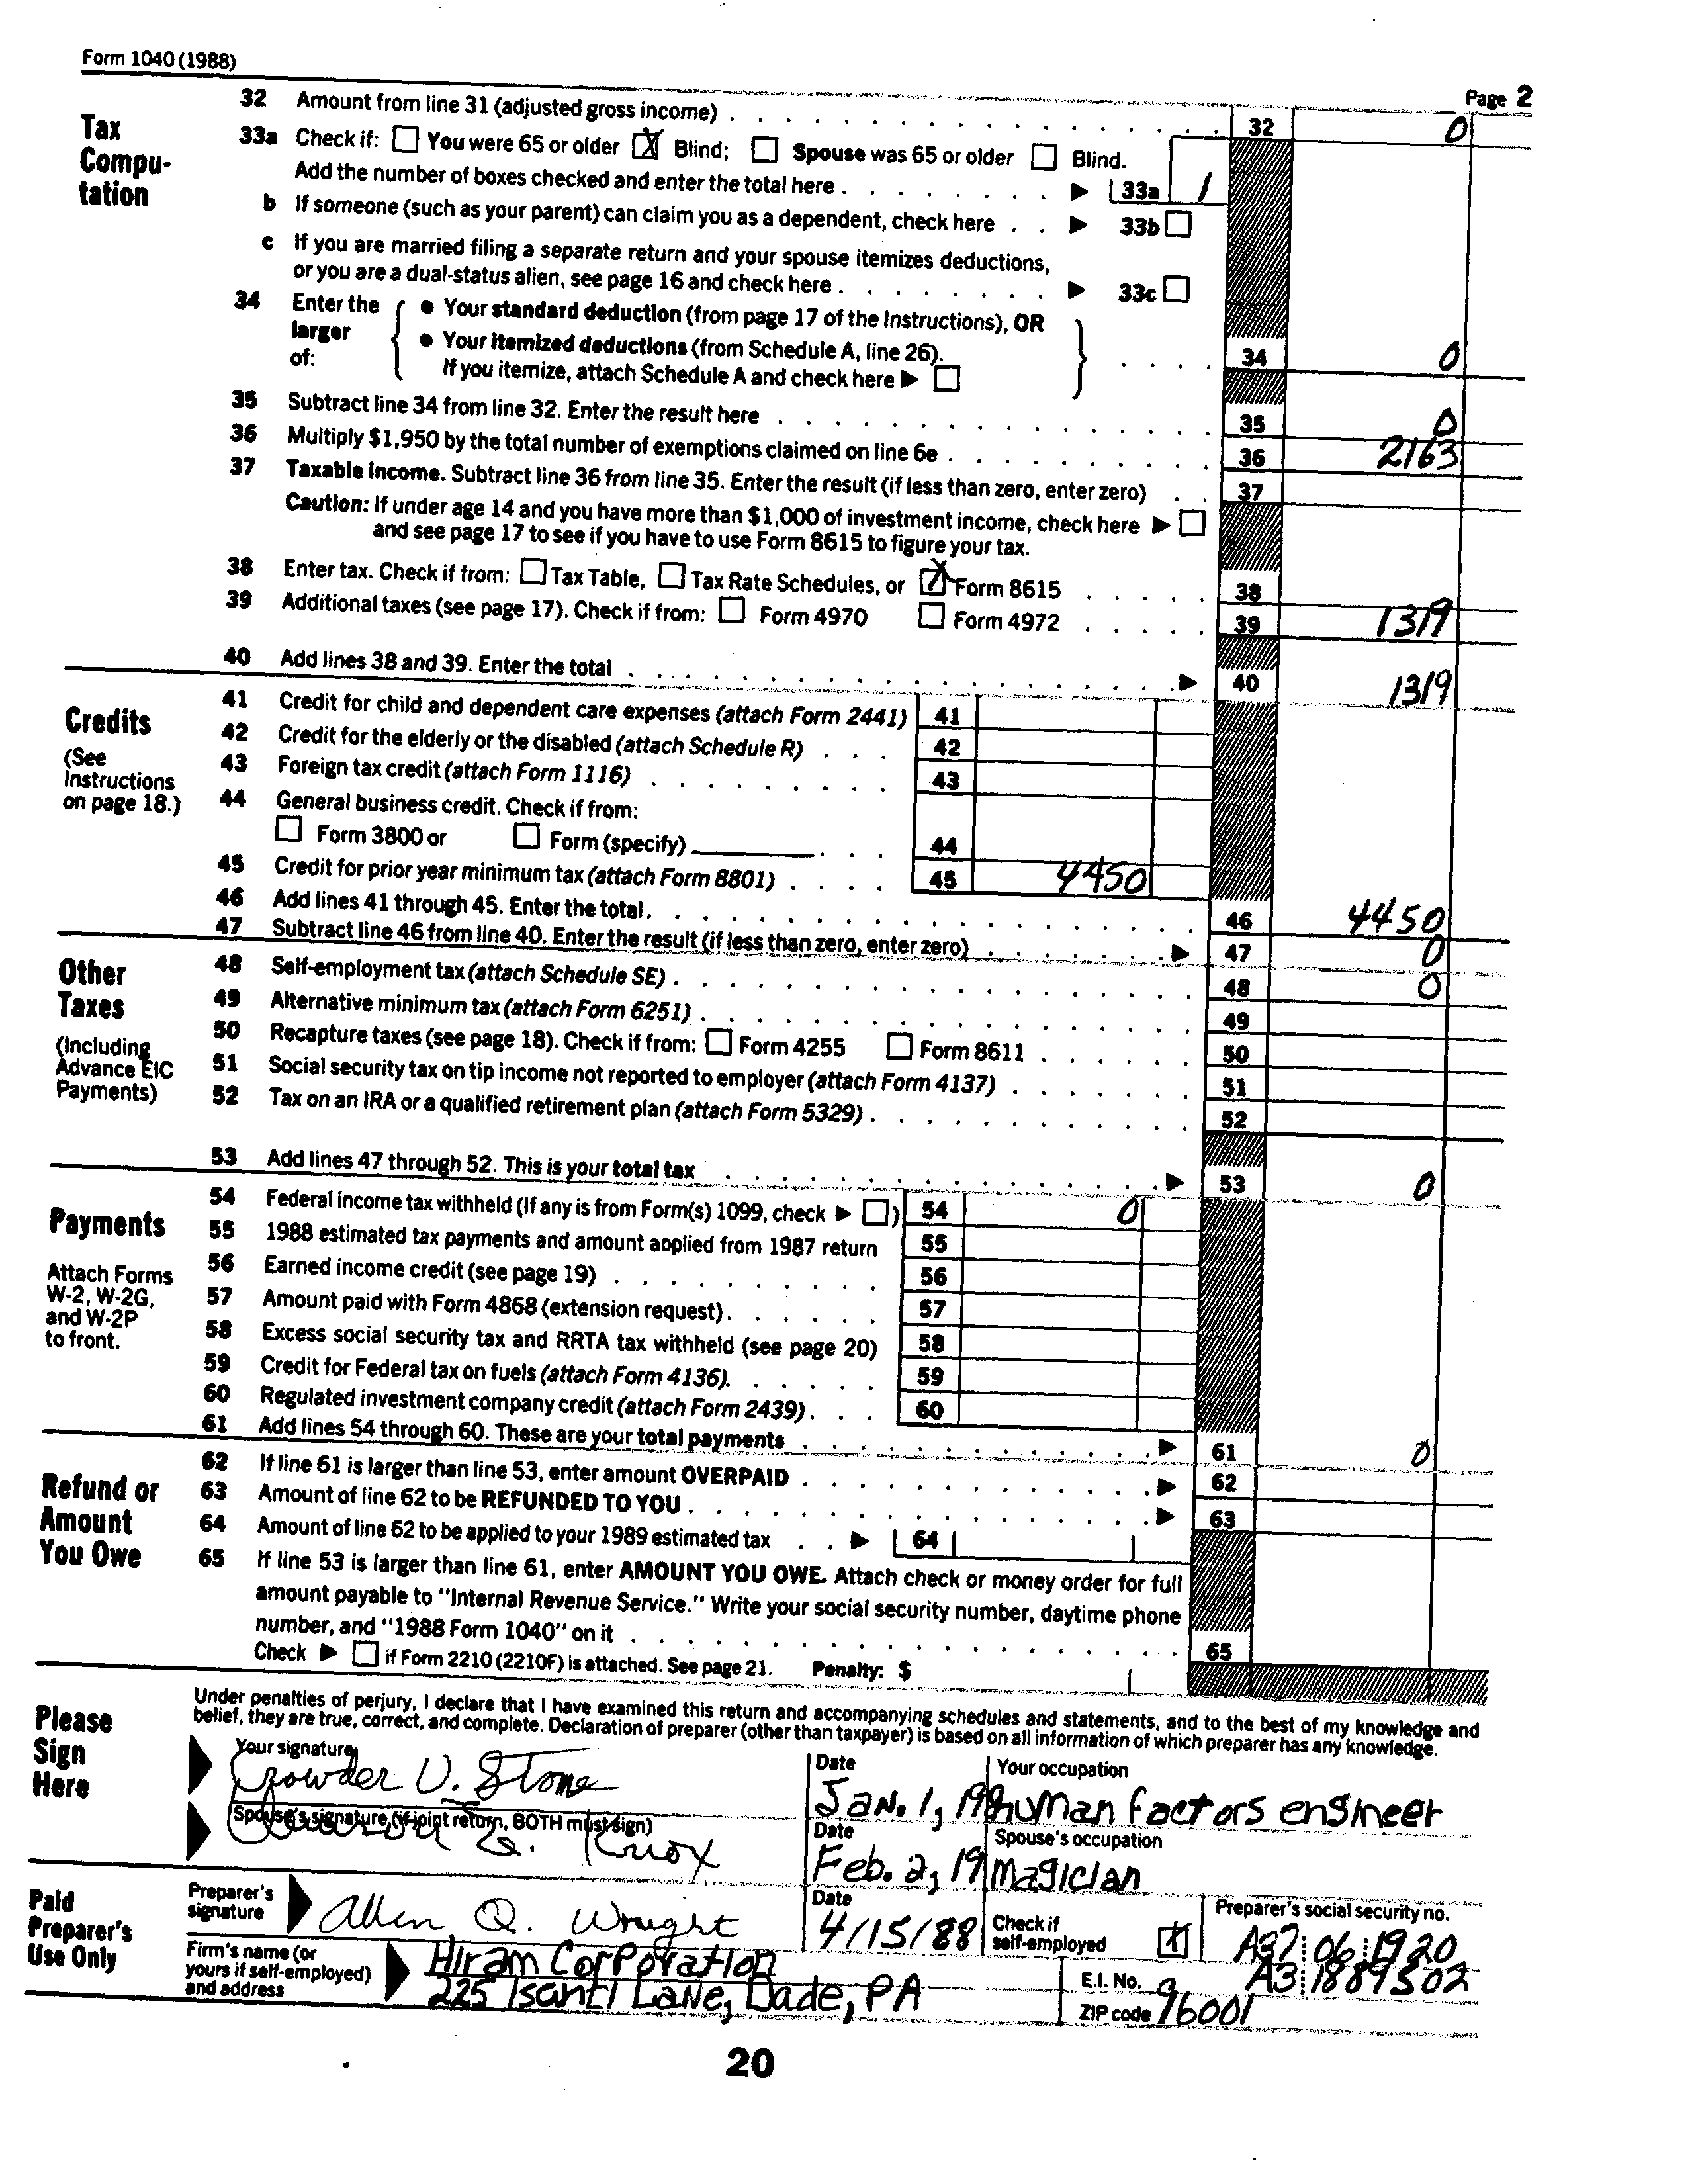 Form 1040 (1988)
Page 2
Tax Compu-tation
32 Amount from line 31 (adjusted gross income) 32 0
33a Check if: You were 65 or older X Blind; Spouse was 65 or older Blind.
Add the number of boxes checked and enter the total here 33a 1
b If someone (such as your parent) can claim you as a dependent, check here 33b
c If you are married filing a separate return and your spouse itemizes deductions,
or you are a dual-status alien, see page 16 and check here 33c
34 Enter the larger of:
• Your standard deduction (from page 17 of the Instructions), OR
• Your itemized deductions (from Schedule A, line 26).
If you itemize, attach Schedule A and check here 34 0
35 Subtract line 34 from line 32. Enter the result here 35 0
36 Multiply $1,950 by the total number of exemptions claimed on line 6e 36 2163
37 Taxable income. Subtract line 36 from line 35. Enter the result (if less than zero, enter zero) 37
Caution: If under age 14 and you have more than $1,000 of investment income, check here
and see page 17 to see if you have to use Form 8615 to figure your tax.
38 Enter tax. Check if from: Tax Table, Tax Rate Schedules, or X Form 8615 38
39 Additional taxes (see page 17). Check if from: Form 4970 Form 4972 39 1319
40 Add lines 38 and 39. Enter the total 40 1319
Credits
(See Instructions on page 18.)
41 Credit for child and dependent care expenses (attach Form 2441) 41
42 Credit for the elderly or the disabled (attach Schedule R) 42
43 Foreign tax credit (attach Form 1116) 43
44 General business credit. Check if from:
Form 3800 or Form (specify) 44
45 Credit for prior year minimum tax (attach Form 8801) 45 4450
46 Add lines 41 through 45. Enter the total 46 4450
47 Subtract line 46 from line 40. Enter the result (if less than zero, enter zero) 47 0
Other Taxes
(Including Advance EIC Payments)
48 Self-employment tax (attach Schedule SE) 48 0
49 Alternative minimum tax (attach Form 6251) 49
50 Recapture taxes (see page 18). Check if from: Form 4255 Form 8611 50
51 Social security tax on tip income not reported to employer (attach Form 4137) 51
52 Tax on an IRA or a qualified retirement plan (attach Form 5329) 52
53 Add lines 47 through 52. This is your total tax 53 0
Payments
Attach Forms W-2, W-2G, and W-2P to front.
54 Federal income tax withheld (If any is from Form(s) 1099, check ) 54 0
55 1988 estimated tax payments and amount applied from 1987 return 55
56 Earned income credit (see page 19) 56
57 Amount paid with Form 4868 (extension request) 57
58 Excess social security tax and RRTA tax withheld (see page 20) 58
59 Credit for Federal tax on fuels (attach Form 4136) 59
60 Regulated investment company credit (attach Form 2439) 60
61 Add lines 54 through 60. These are your total payments 61 0
Refund or Amount You Owe
62 If line 61 is larger than line 53, enter amount OVERPAID 62
63 Amount of line 62 to be REFUNDED TO YOU 63
64 Amount of line 62 to be applied to your 1989 estimated tax 64
65 If line 53 is larger than line 61, enter AMOUNT YOU OWE. Attach check or money order for full
amount payable to "Internal Revenue Service." Write your social security number, daytime phone
number, and "1988 Form 1040" on it 65
Check if Form 2210 (2210F) is attached. See page 21. Penalty: $
Please Sign Here
Under penalties of perjury, I declare that I have examined this return and accompanying schedules and statements, and to the best of my knowledge and
belief, they are true, correct, and complete. Declaration of preparer (other than taxpayer) is based on all information of which preparer has any knowledge.
Your signature Crowder U. Stone Date Jan. 1, 198 Your occupation human factors engineer
Spouse's signature (if joint return, BOTH must sign) Q. Knox Date Feb. 2, 19 Spouse's occupation Magician
Paid Preparer's Use Only
Preparer's signature Allen Q. Wright Date 4/15/88 Check if self-employed X Preparer's social security no. A37 06 1920
Firm's name (or yours if self-employed) and address Hiram Corporation E.I. No. A3 1889502
225 Isanti Lane, Dade, PA ZIP code 96001
20